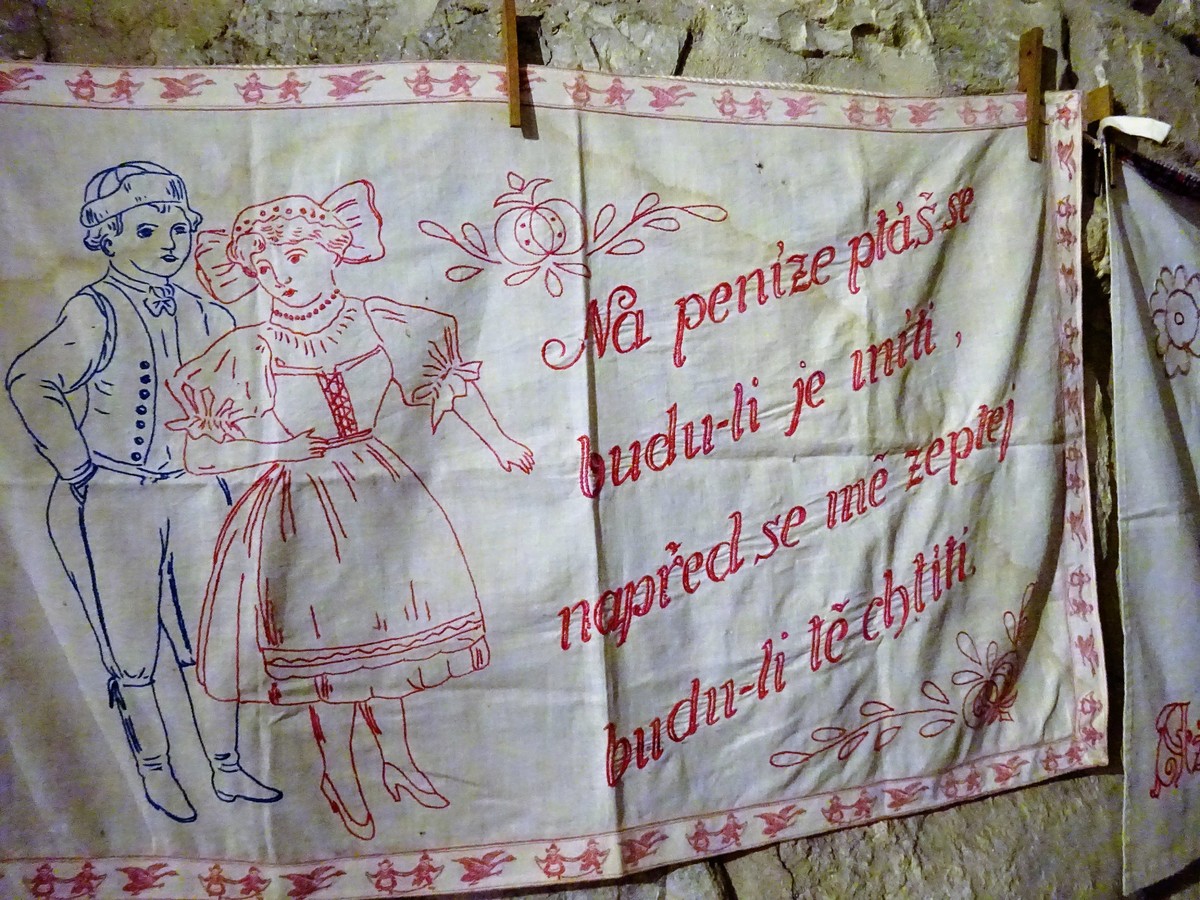 Na peníze ptáš se
budu-li je míti ,
napřed se mě zeptej
budu-li tě chtíti.